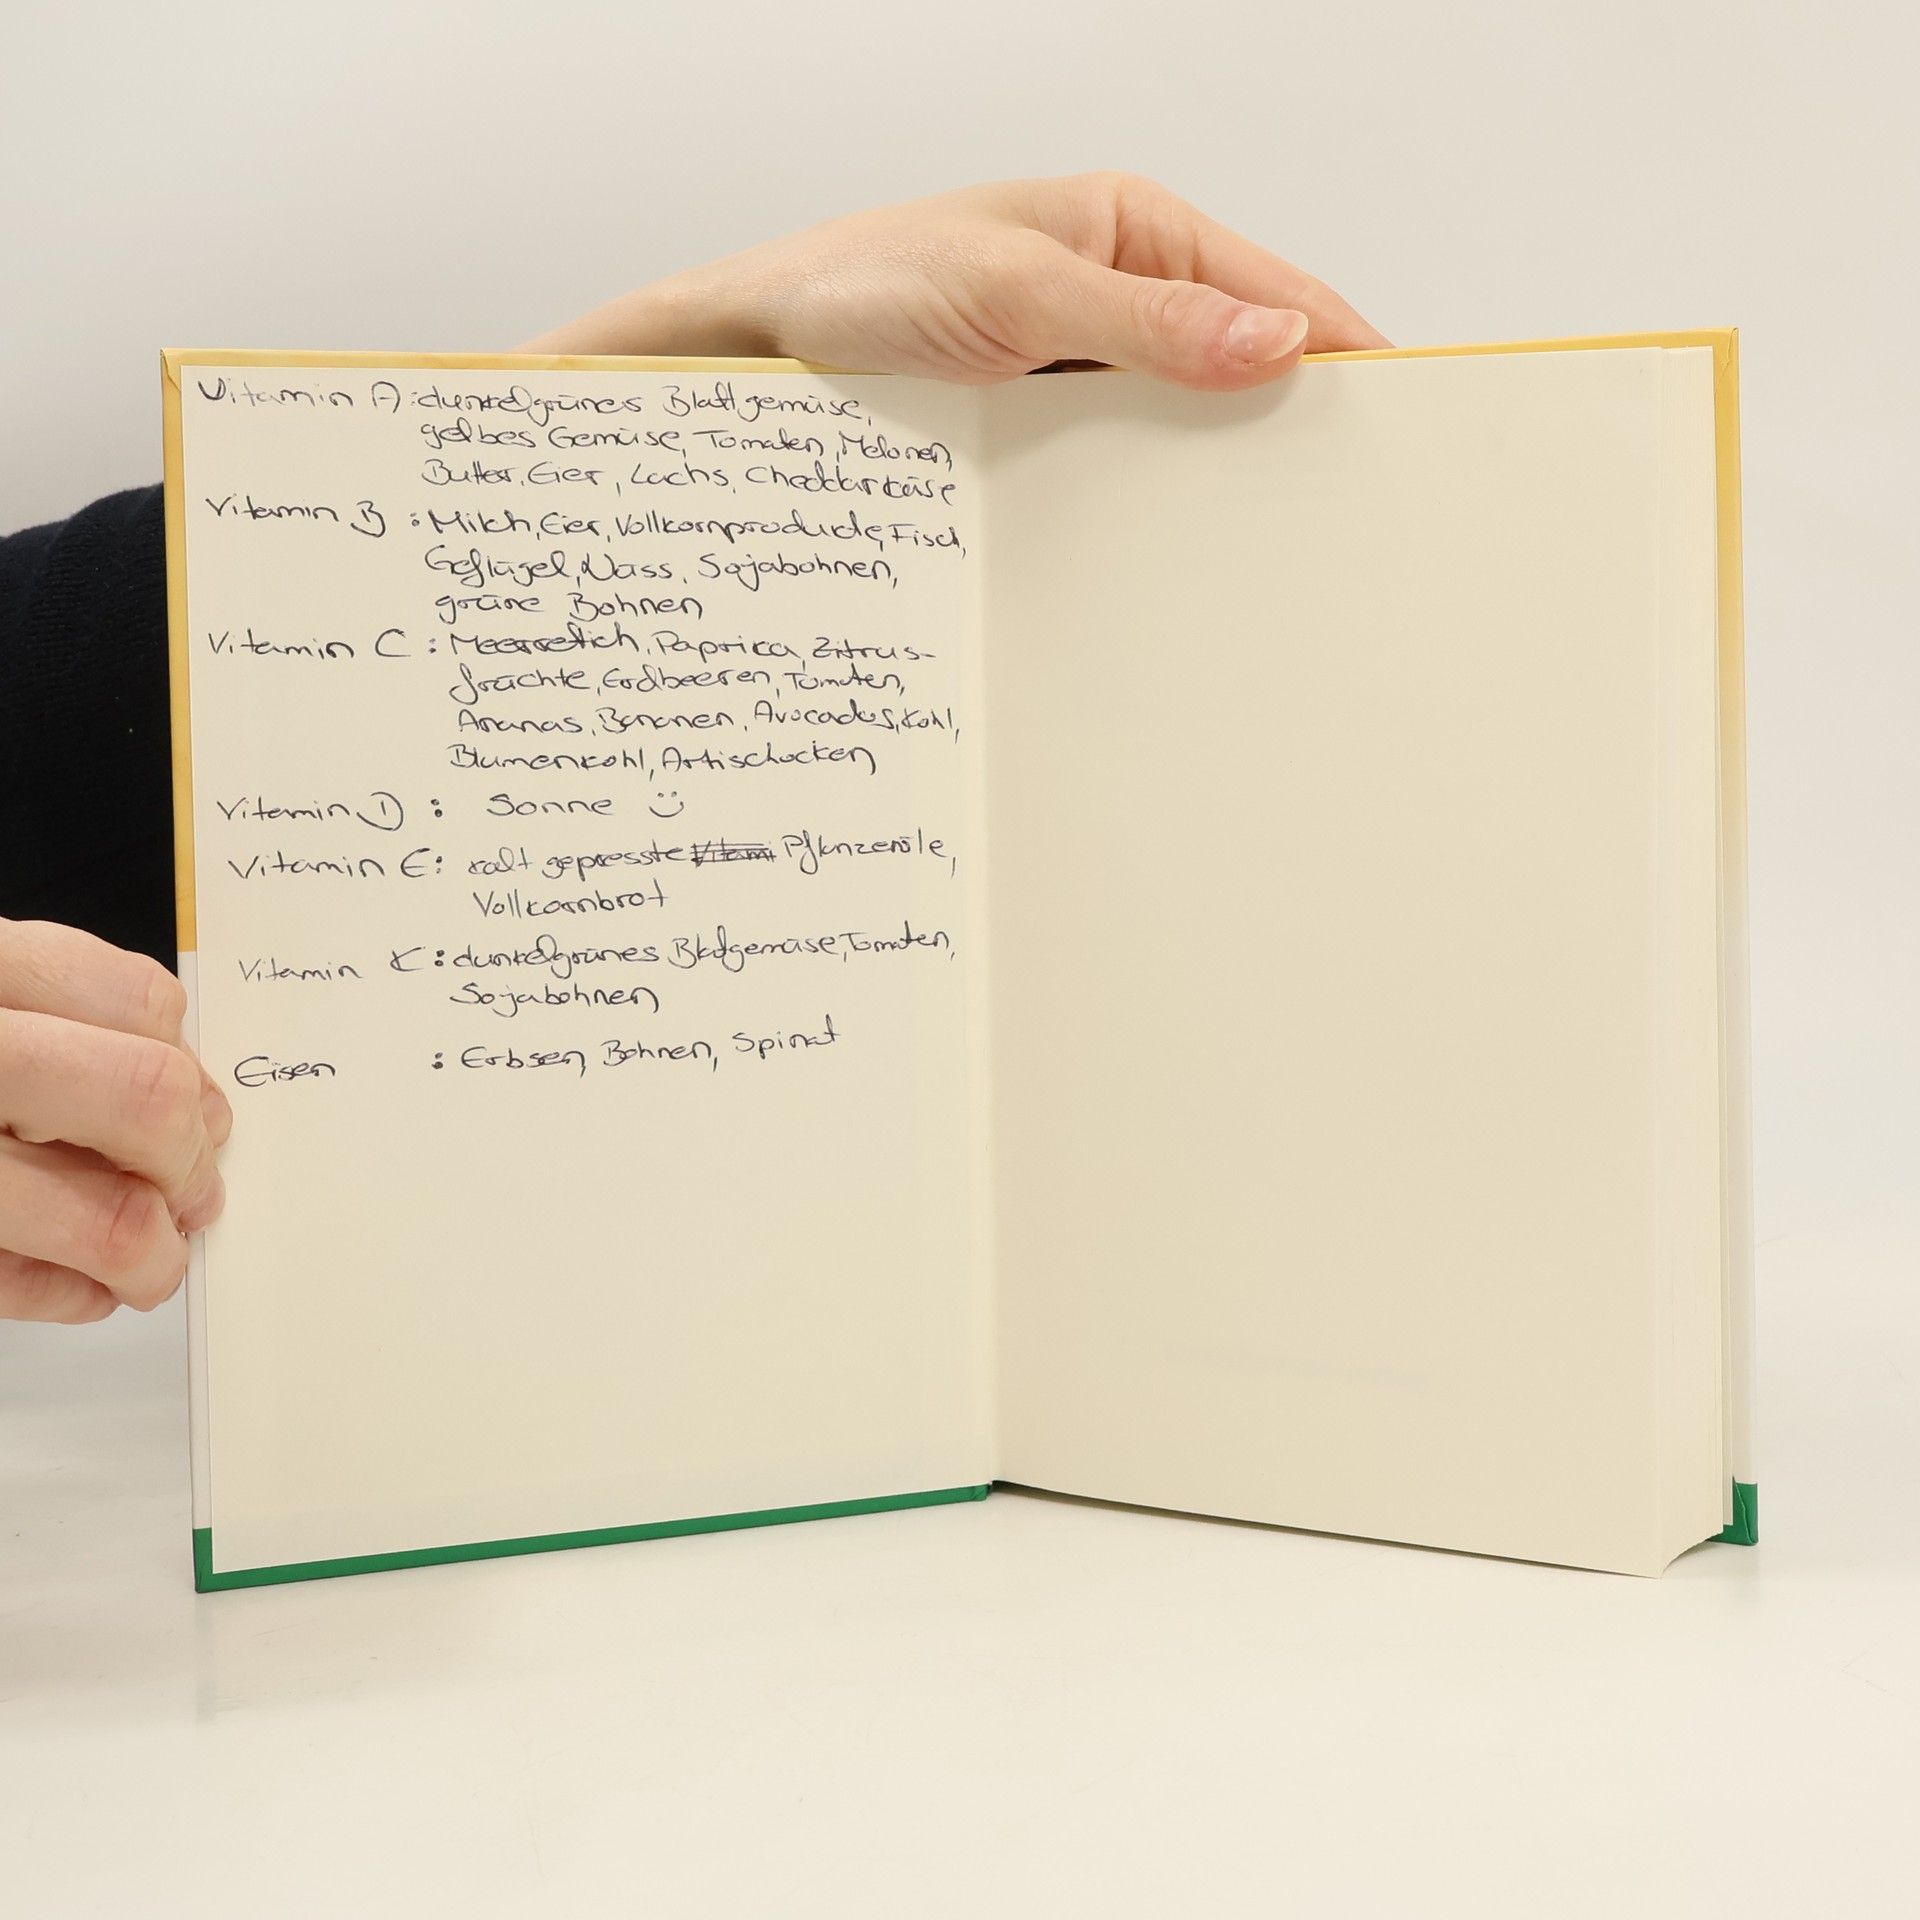 Vitamin A: dunkelgrünes Blattgemüse,
gelbes Gemüse, Tomaten, Melonen,
Butter, Eier, Lachs, Cheddarkäse
Vitamin B : Milch, Eier, Vollkornprodukte, Fisch,
Geflügel, Nüss, Sojabohnen,
grüne Bohnen
Vitamin C : Meerrettich, Paprika, Zitrus-
früchte, Erdbeeren, Tomaten,
Ananas, Bananen, Avocados, Kohl,
Blumenkohl, Artischocken
Vitamin D : Sonne
Vitamin E: kalt gepresste Vitami Pflanzenöle,
Vollkornbrot
Vitamin K: dunkelgrünes Blattgemüse, Tomaten,
Sojabohnen
Eisen : Erbsen, Bohnen, Spinat